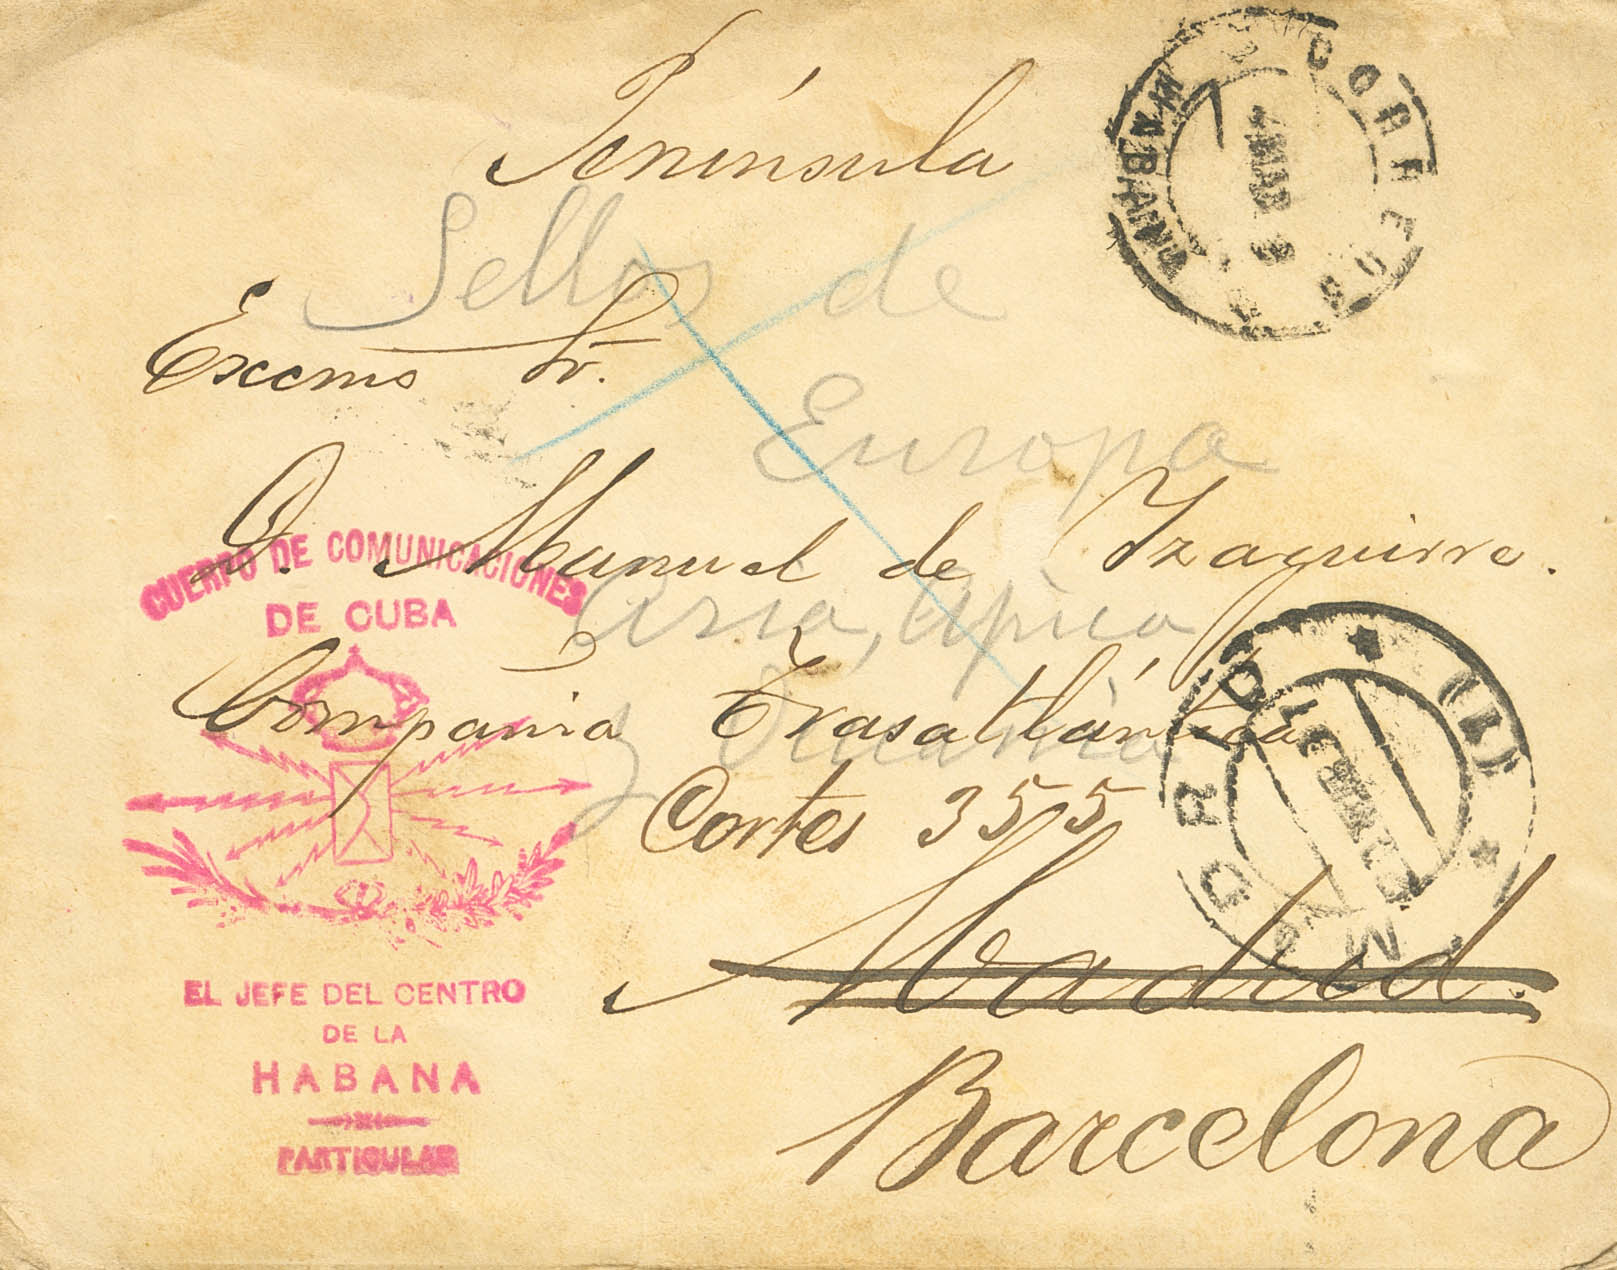 Península
CORREOS
HABANA
Sellos de
Excmo Sr.
Europa
D. Manuel de Yzaguirre.
Asia, Africa
Compañia Trasatlántica
y Oceania
Cortes 355
Madrid.
Barcelona
CUERPO DE COMUNICACIONES
DE CUBA
EL JEFE DEL CENTRO
DE LA
HABANA
PARTICULAR
MADRID